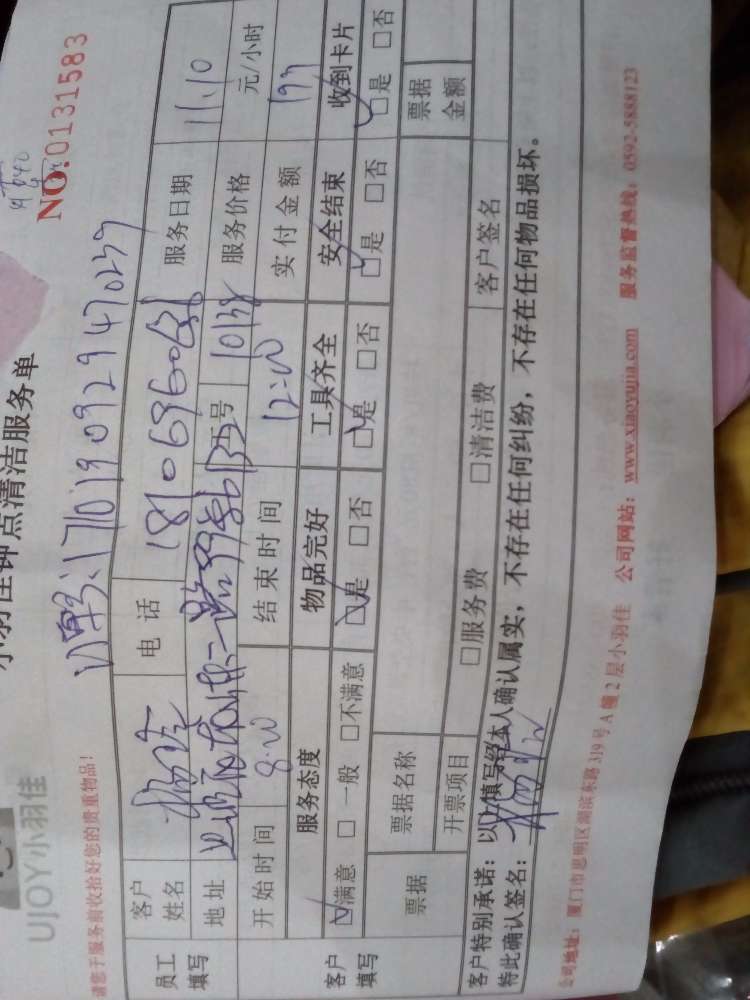 UJOY小羽佳
小羽佳钟点清洁服务单
NO:0131583
请您于服务前收拾好您的贵重物品！
订单号:1710190929470239
员工填写
客户姓名
电话
服务日期 11.10
地址
服务价格 元/小时
开始时间 8:00 结束时间 12:00 实付金额
客户填写
服务态度 物品完好 工具齐全 安全结束 收到卡片
□满意 □一般 □不满意 □是 □否 □是 □否 □是 □否 □是 □否
票据
票据名称 票据金额
开票项目 □服务费 □清洁费 客户签名
客户特别承诺：以上填写经本人确认属实，不存在任何纠纷，不存在任何物品损坏。
特此确认签名：
公司地址：厦门市思明区湖滨东路319号A幢2层小羽佳 公司网站：www.xiaoyujia.com 服务监督热线：0592-5888123